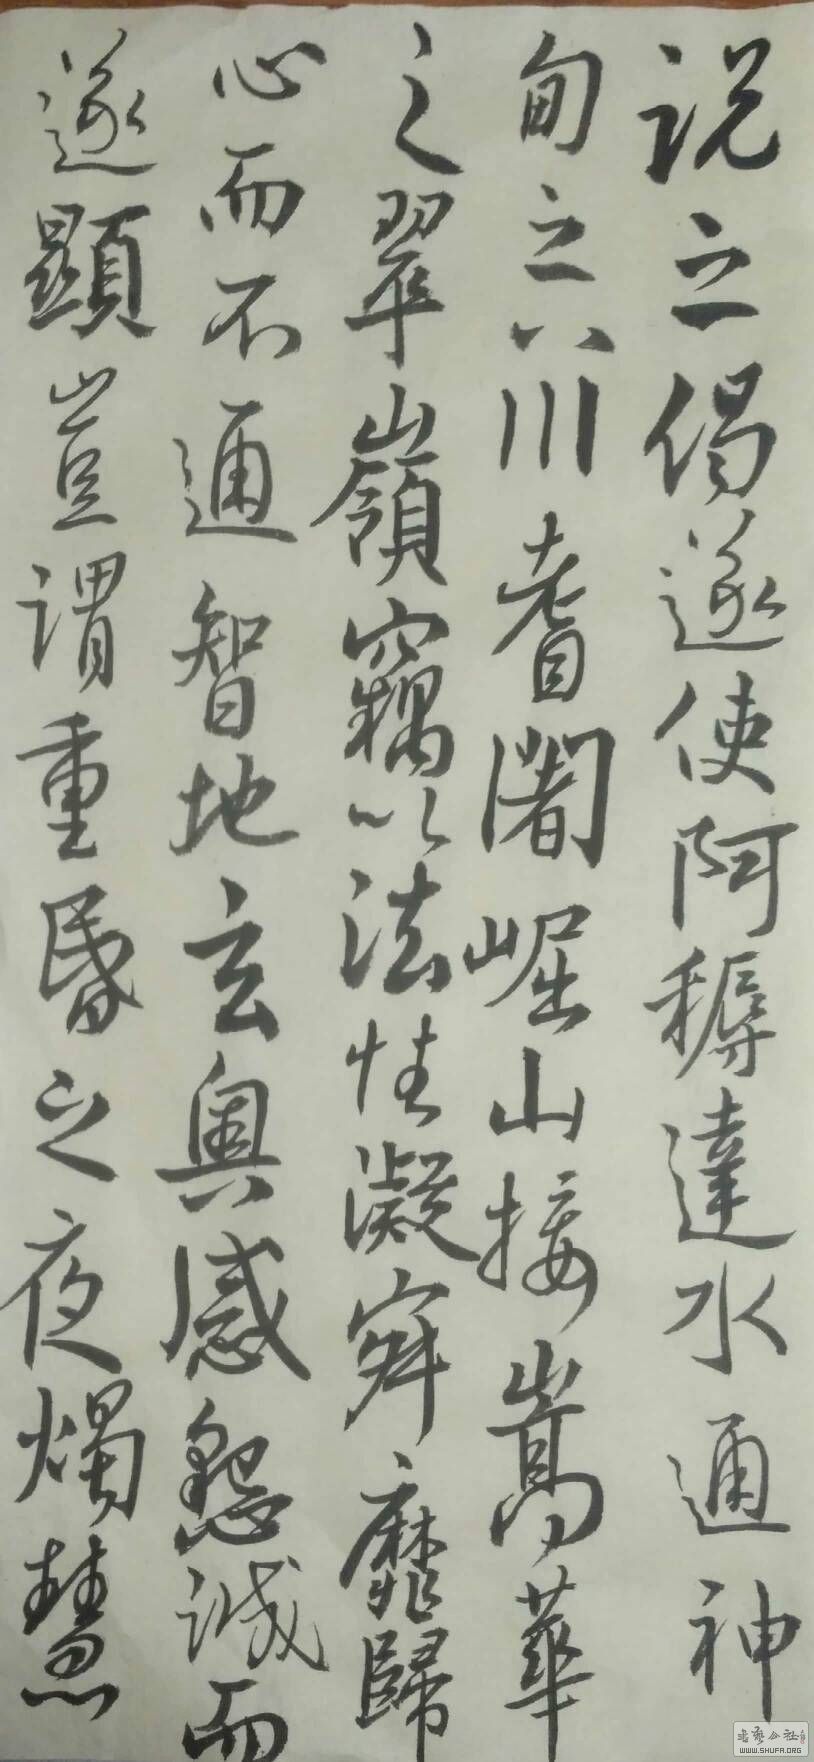 说之偈遂使阿耨達水通神
甸之八川耆闍崛山接嵩華
之翠嶺竊以法性凝寂靡歸
心而不通智地玄奥感懇誠而
遂顯豈謂重昏之夜燭慧
WWW.SHUFA.ORG